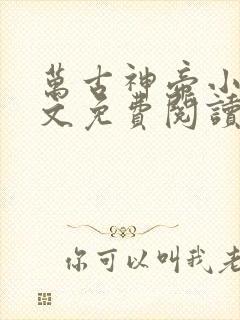 萬古神帝小
文免費閱讀
你可以叫我老